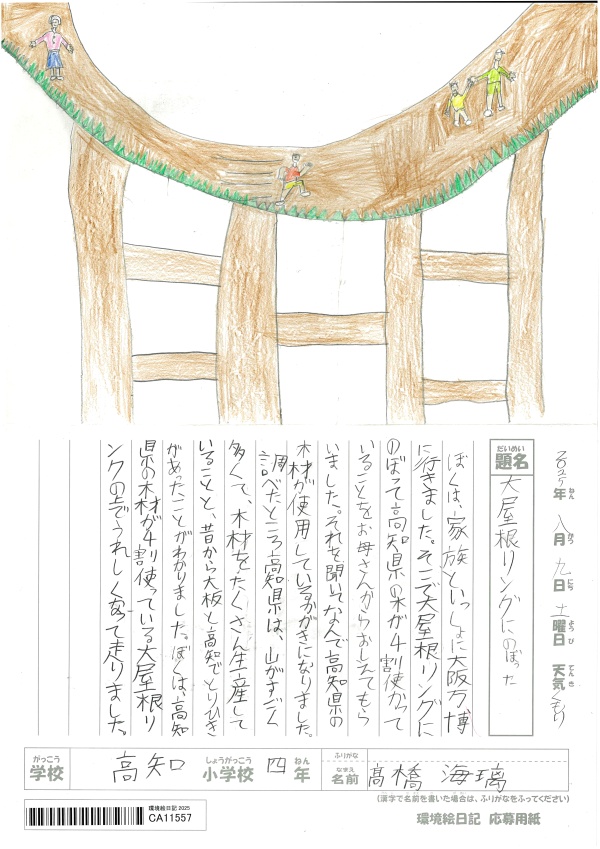 2025年 八月 九日 土曜日 天気 くもり
ねん がつ にち ようび てんき
だいめい
題名
大屋根リングにのぼった
ぼくは、家族といっしょに大阪万博
に行きました。そこで大屋根リングに
のぼって高知県の木が4割使かって
いることをお母さんからおしえてもら
いました。それを聞いてなんで高知県の
木材が使用しているかがきになりました。
調べたところ高知県は、山がすごく
多くて、木材をたくさん生産して
いることと、昔から大板と高知でとりひき
があったことがわかりました。ぼくは、高知
県の木材が4割使っている大屋根リ
ングの上でうれしくなって走りました。
がっこう しょうがっこう ねん ふりがな
学校 高知 小学校 四年 なまえ 名前 髙橋 海璃
(漢字で名前を書いた場合は、ふりがなをふってください)
環境絵日記 2025
CA11557
環境絵日記 応募用紙